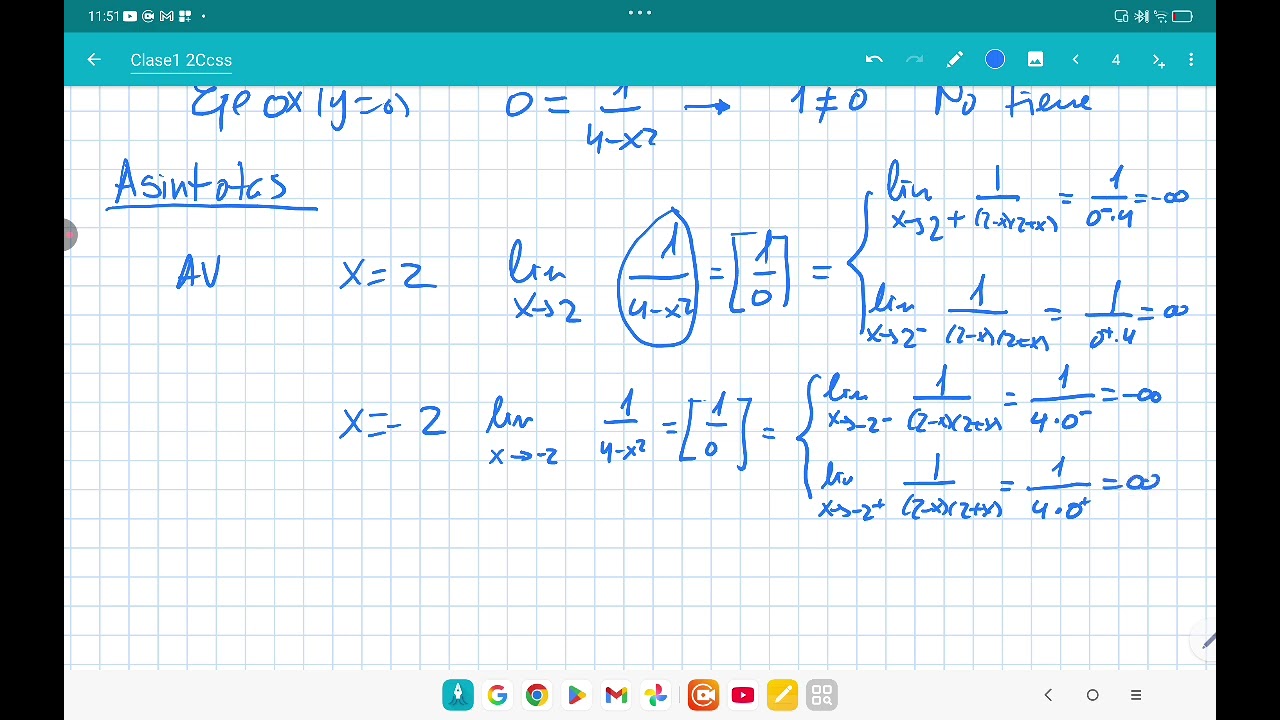 11:51
Clase1 2Ccss
4
Eje OX (y=0) 0 = 1/(4-x²) → 1 ≠ 0 No tiene
Asintotas
AV x = 2 lim x→2 1/(4-x²) = [1/0] = { lim x→2+ 1/((2-x)(2+x)) = 1/(0⁻·4) = -∞
lim x→2⁻ 1/((2-x)(2+x)) = 1/(0⁺·4) = ∞
x = -2 lim x→-2 1/(4-x²) = [1/0] = { lim x→-2⁻ 1/((2-x)(2+x)) = 1/(4·0⁻) = -∞
lim x→-2⁺ 1/((2-x)(2+x)) = 1/(4·0⁺) = ∞